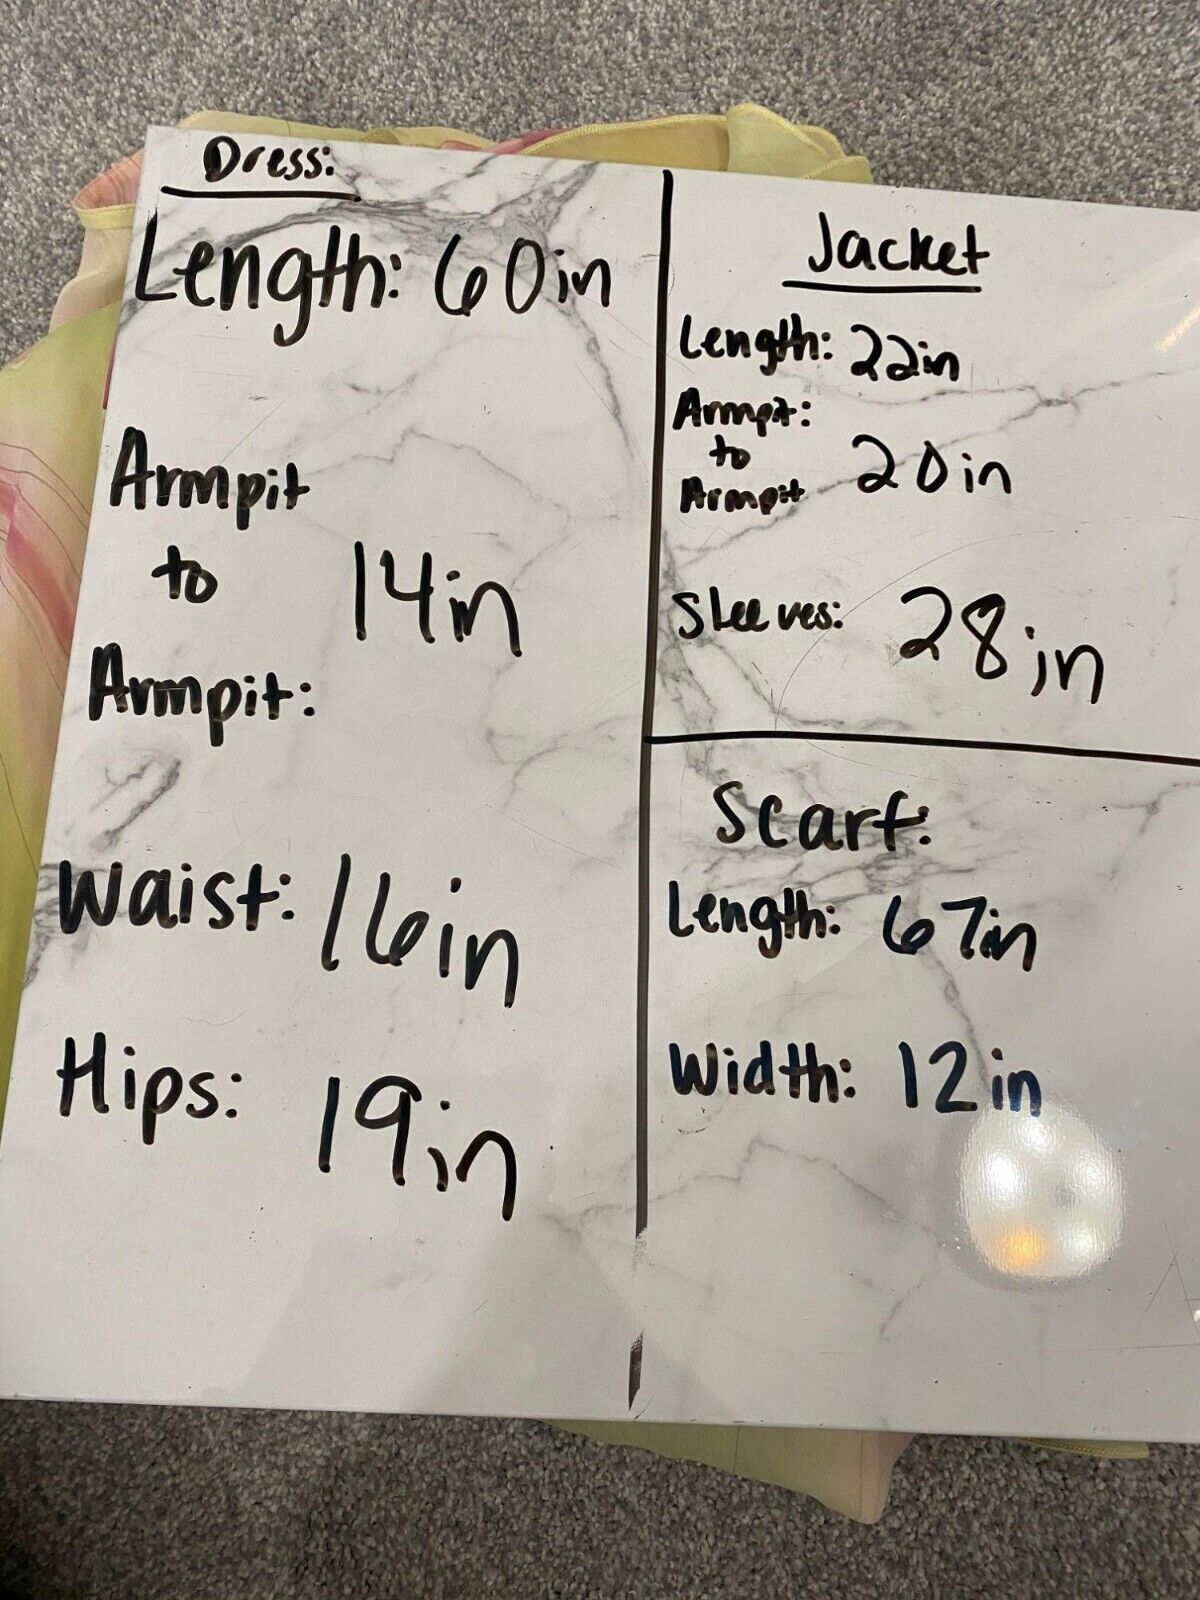 Dress:
Length: 60in
Armpit
to 14in
Armpit:
Waist: 16in
Hips: 19in
Jacket
Length: 22in
Armpit:
to 20in
Armpit
Sleeves: 28in
Scarf:
Length: 67in
Width: 12in